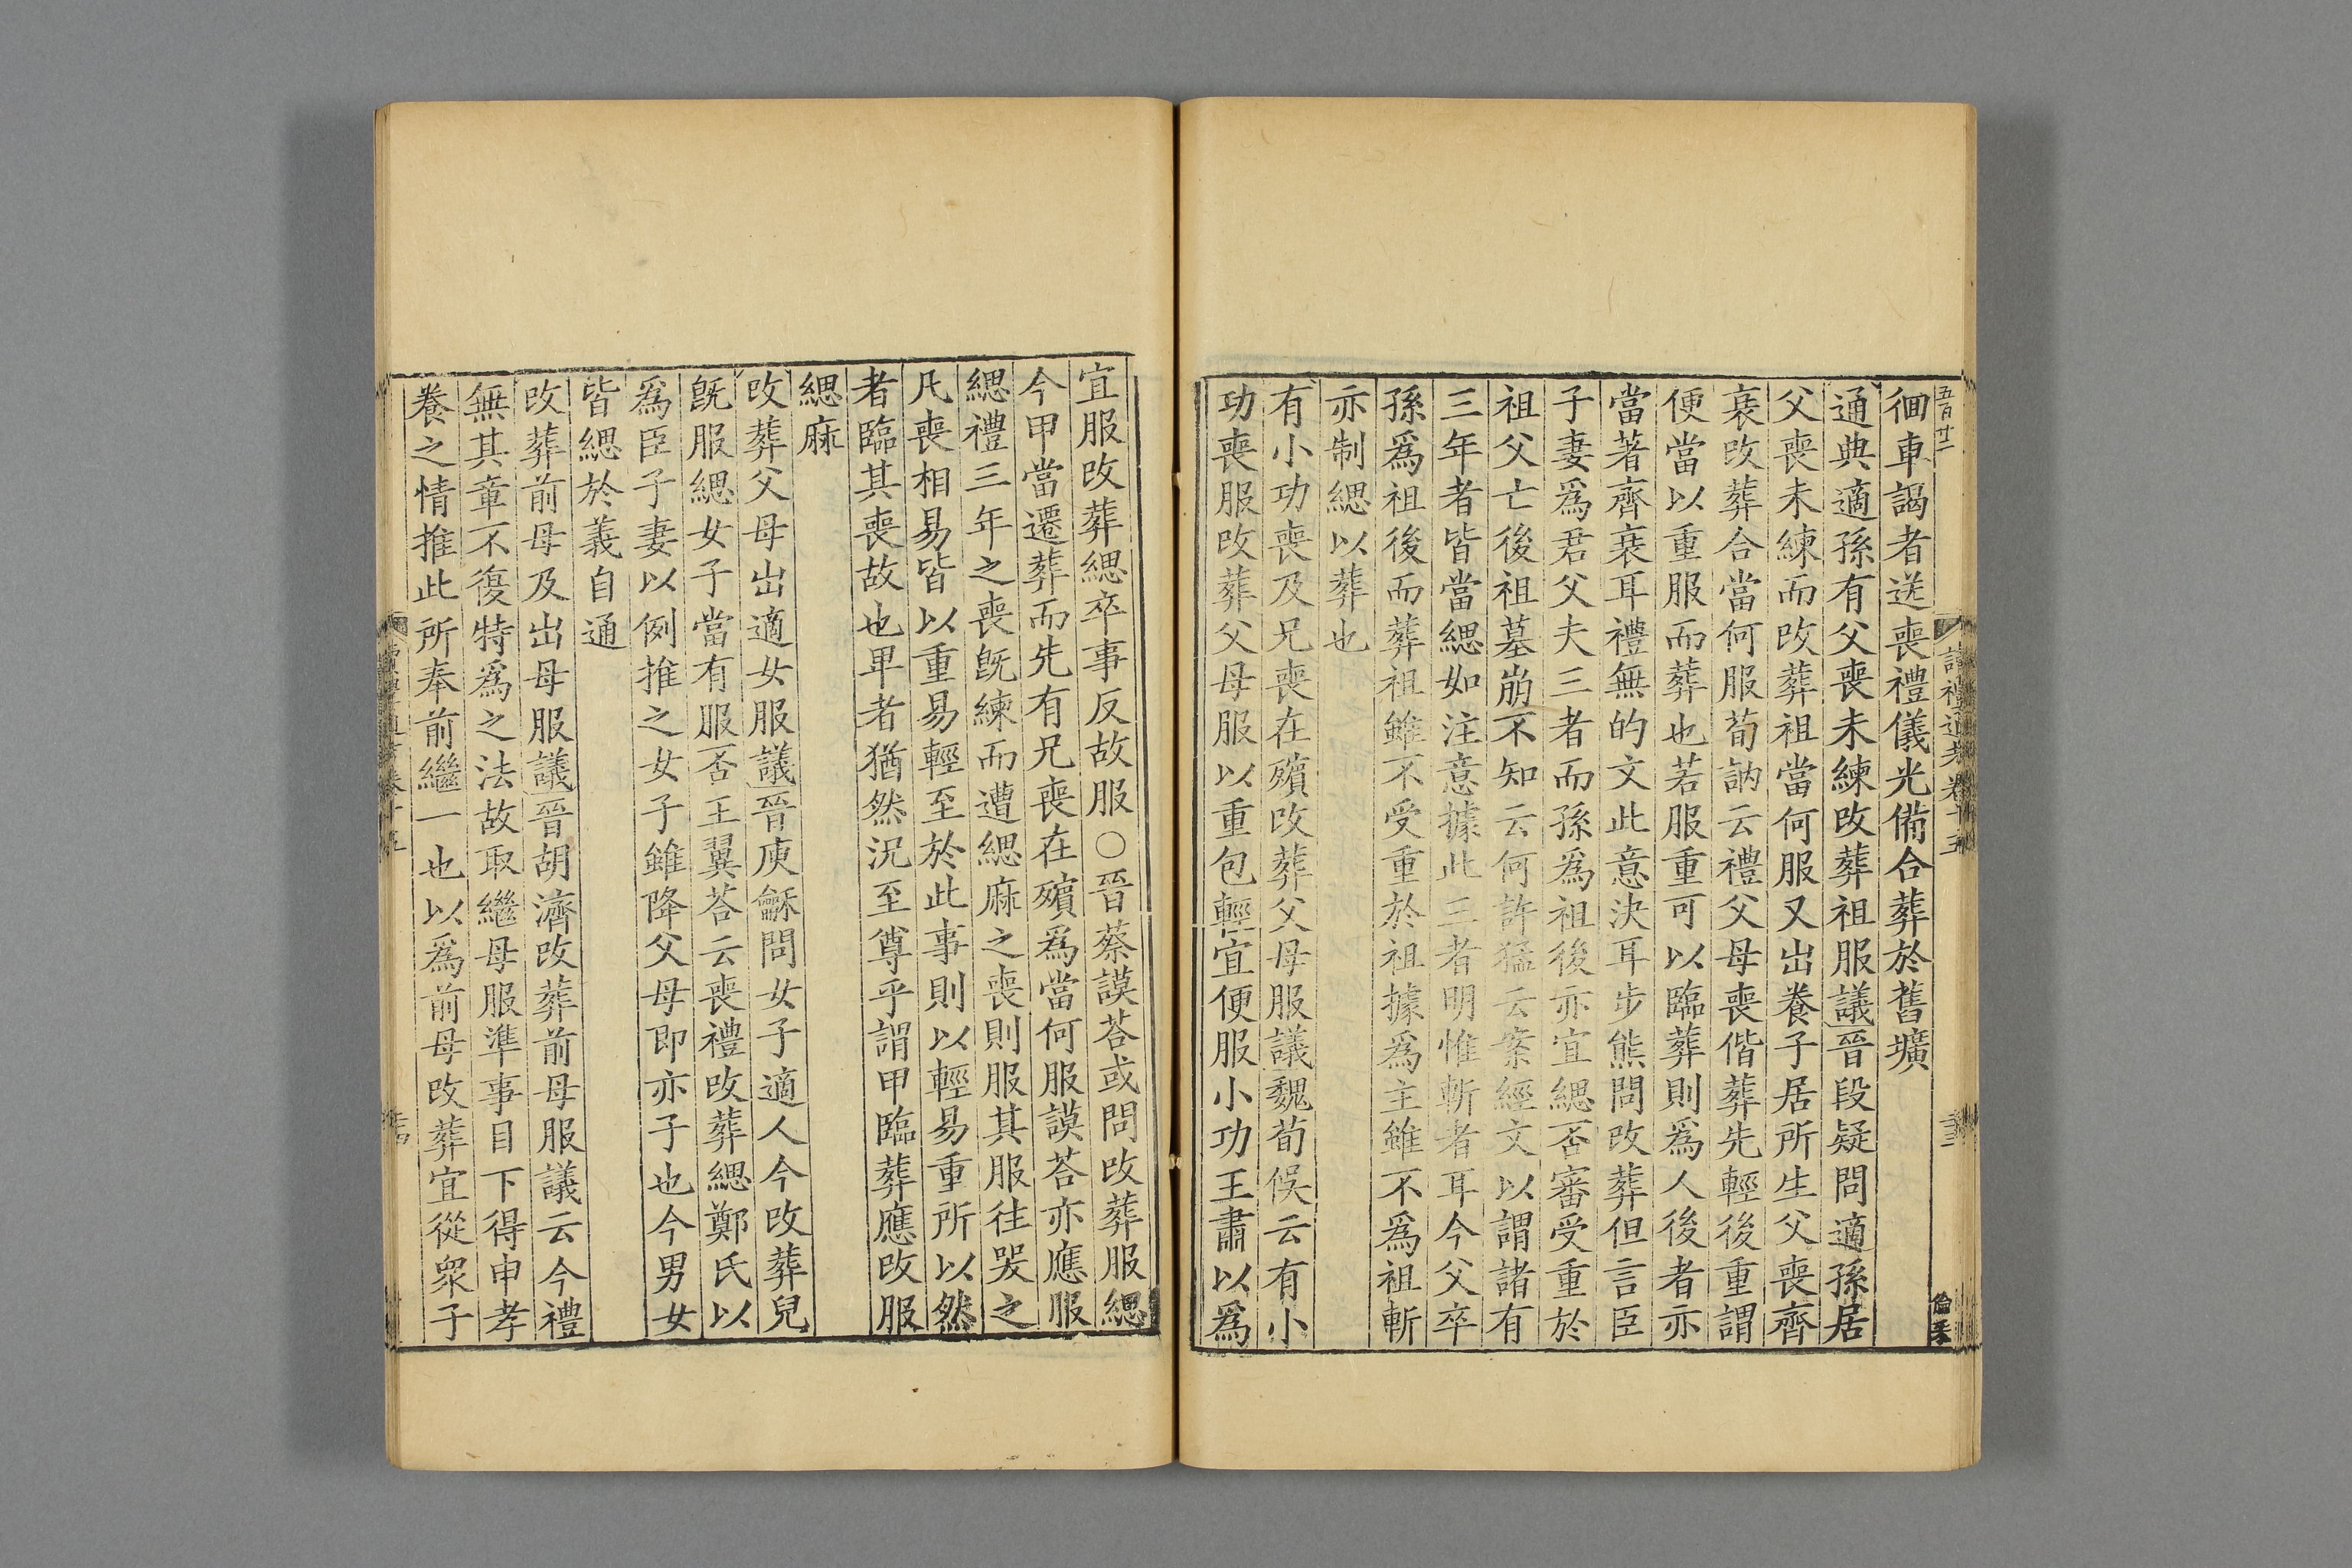 徊車謁者送喪禮儀光備合葬於舊壙
通典適孫有父喪未練改葬祖服議晉段疑問適孫居
父喪未練而改葬祖當何服又出養子居所生父喪齊
衰改葬合當何服荀訥云禮父母喪偕葬先輕後重謂
便當以重服而葬也若服重可以臨葬則爲人後者亦
當著齊衰耳禮無的文此意決耳步熊問改葬但言臣
子妻爲君父夫三者而孫爲祖後亦宜緦否審受重於
祖父亡後祖墓崩不知云何許猛云案經文以謂諸有
三年者皆當緦如注意據此三者明惟斬者耳今父卒
孫爲祖後而葬祖雖不受重於祖據爲主雖不爲祖斬
亦制緦以葬也
有小功喪及兄喪在殯改葬父母服議魏荀俁云有小
功喪服改葬父母服以重包輕宜便服小功王肅以爲
宜服改葬緦卒事反故服○晉蔡謨荅或問改葬服緦
今甲當遷葬而先有兄喪在殯爲當何服謨荅亦應服
緦禮三年之喪旣練而遭緦麻之喪則服其服往哭之
凡喪相易皆以重易輕至於此事則以輕易重所以然
者臨其喪故也卑者猶然況至尊乎謂甲臨葬應改服
緦麻
改葬父母出適女服議晉庾龢問女子適人今改葬兒
旣服緦女子當有服否王翼荅云喪禮改葬緦鄭氏以
爲臣子妻以例推之女子雖降父母即亦子也今男女
皆緦於義自通
改葬前母及出母服議晉胡濟改葬前母服議云今禮
無其章不復特爲之法故取繼母服準事目下得申孝
養之情推此所奉前繼一也以爲前母改葬宜從眾子